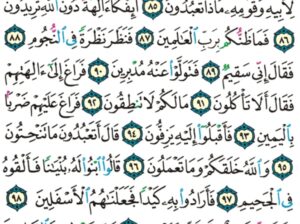 لِأَبِيهِ وَقَوْمِهِۦ مَاذَا تَعْبُدُونَ ٨٥ أَئِفْكًا ءَالِهَةً دُونَ ٱللَّهِ تُرِيدُونَ
٨٦ فَمَا ظَنُّكُم بِرَبِّ ٱلْعَٰلَمِينَ ٨٧ فَنَظَرَ نَظْرَةً فِى ٱلنُّجُومِ ٨٨
فَقَالَ إِنِّى سَقِيمٌ ٨٩ فَتَوَلَّوْا۟ عَنْهُ مُدْبِرِينَ ٩٠ فَرَاغَ إِلَىٰٓ ءَالِهَتِهِمْ
فَقَالَ أَلَا تَأْكُلُونَ ٩١ مَا لَكُمْ لَا تَنطِقُونَ ٩٢ فَرَاغَ عَلَيْهِمْ ضَرْبًۢا
بِٱلْيَمِينِ ٩٣ فَأَقْبَلُوٓا۟ إِلَيْهِ يَزِفُّونَ ٩٤ قَالَ أَتَعْبُدُونَ مَا تَنْحِتُونَ
٩٥ وَٱللَّهُ خَلَقَكُمْ وَمَا تَعْمَلُونَ ٩٦ قَالُوا۟ ٱبْنُوا۟ لَهُۥ بُنْيَٰنًا فَأَلْقُوهُ
فِى ٱلْجَحِيمِ ٩٧ فَأَرَادُوا۟ بِهِۦ كَيْدًا فَجَعَلْنَٰهُمُ ٱلْأَسْفَلِينَ ٩٨